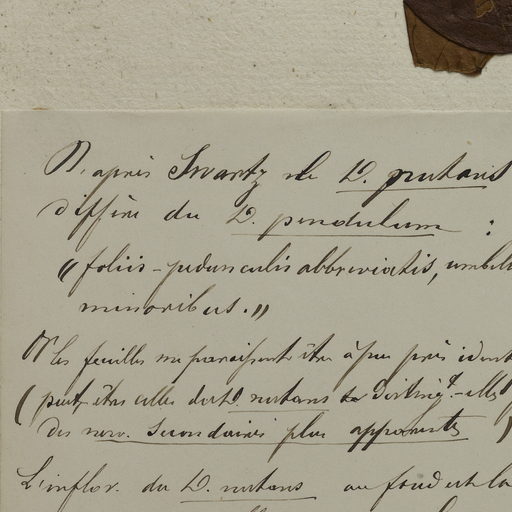 D'après Swartz le D. nutans
diffère du D. pendulum :
« foliis-pedunculis abbreviatis, umbel
minoribus. »
Or les feuilles me paraissent être à peu près ident
( peut-être celles du D. nutans
des nerv. secondaires plus apparents )
L'inflor. du D. nutans au fond est la